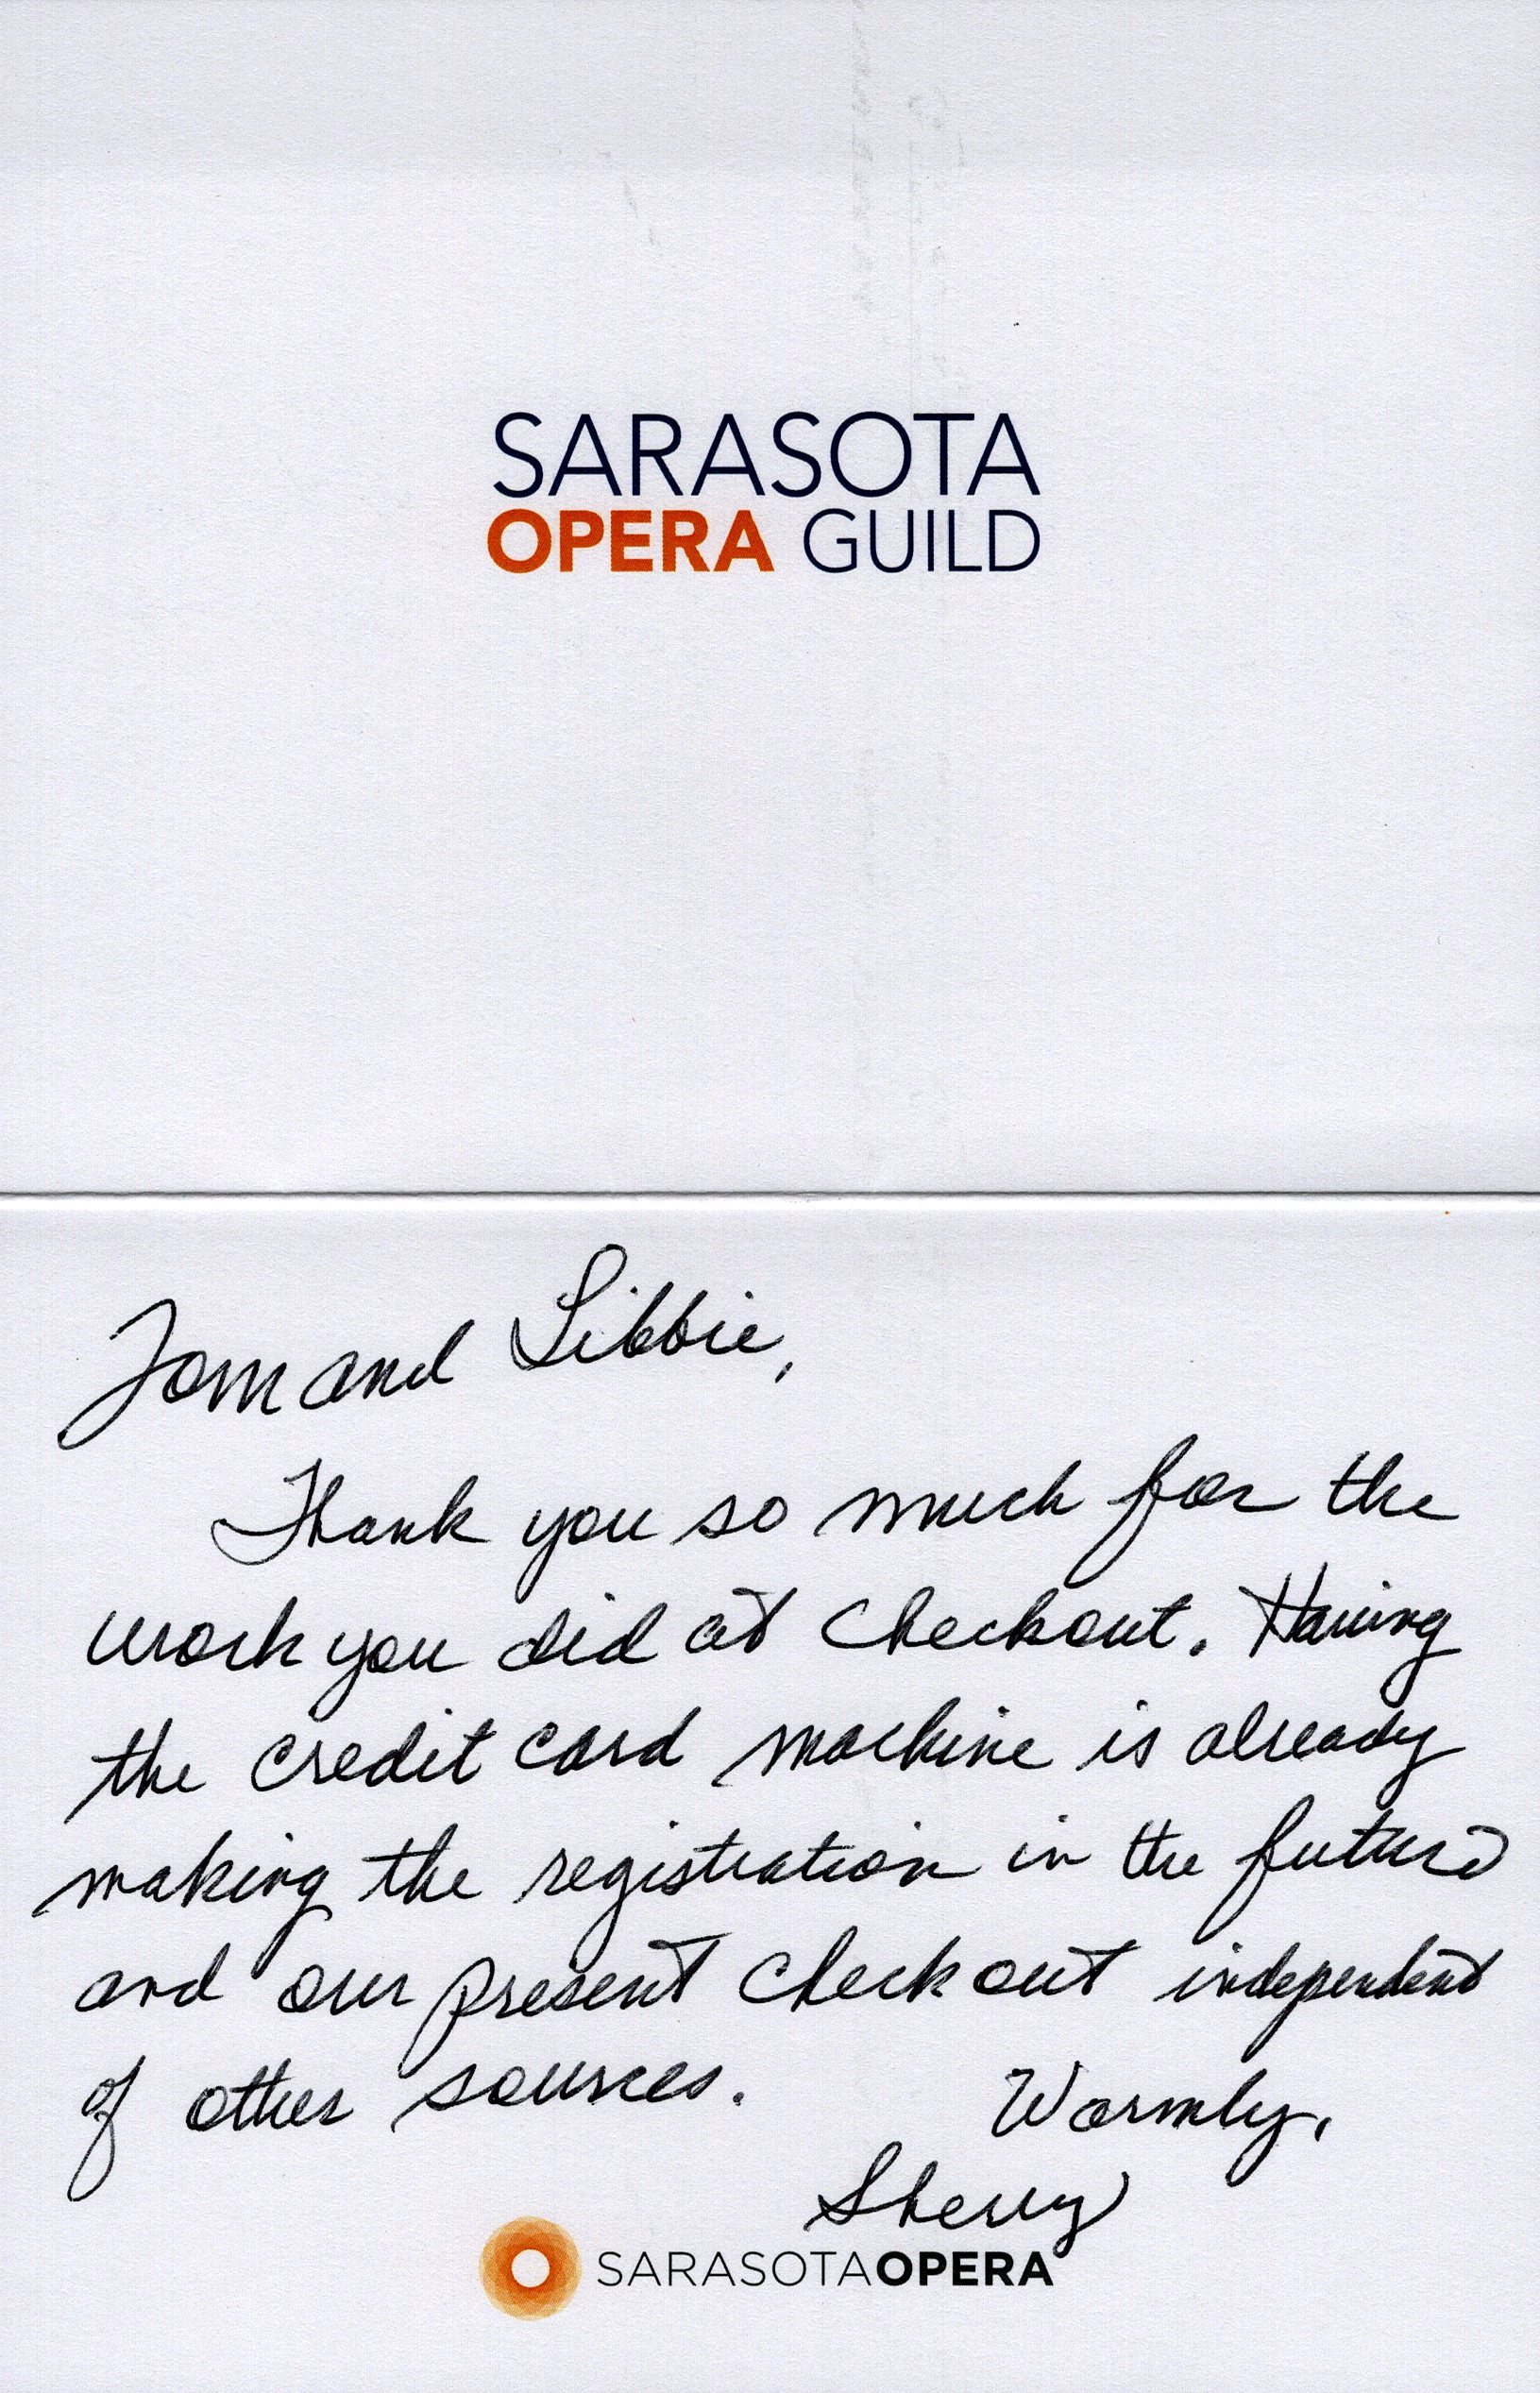 SARASOTA
OPERA GUILD
Tom and Libbie,
Thank you so much for the
work you did at checkout. Having
the credit card machine is already
making the registration in the future
and our present checkout independent
of other sources.
Warmly,
Sherry
SARASOTAOPERA